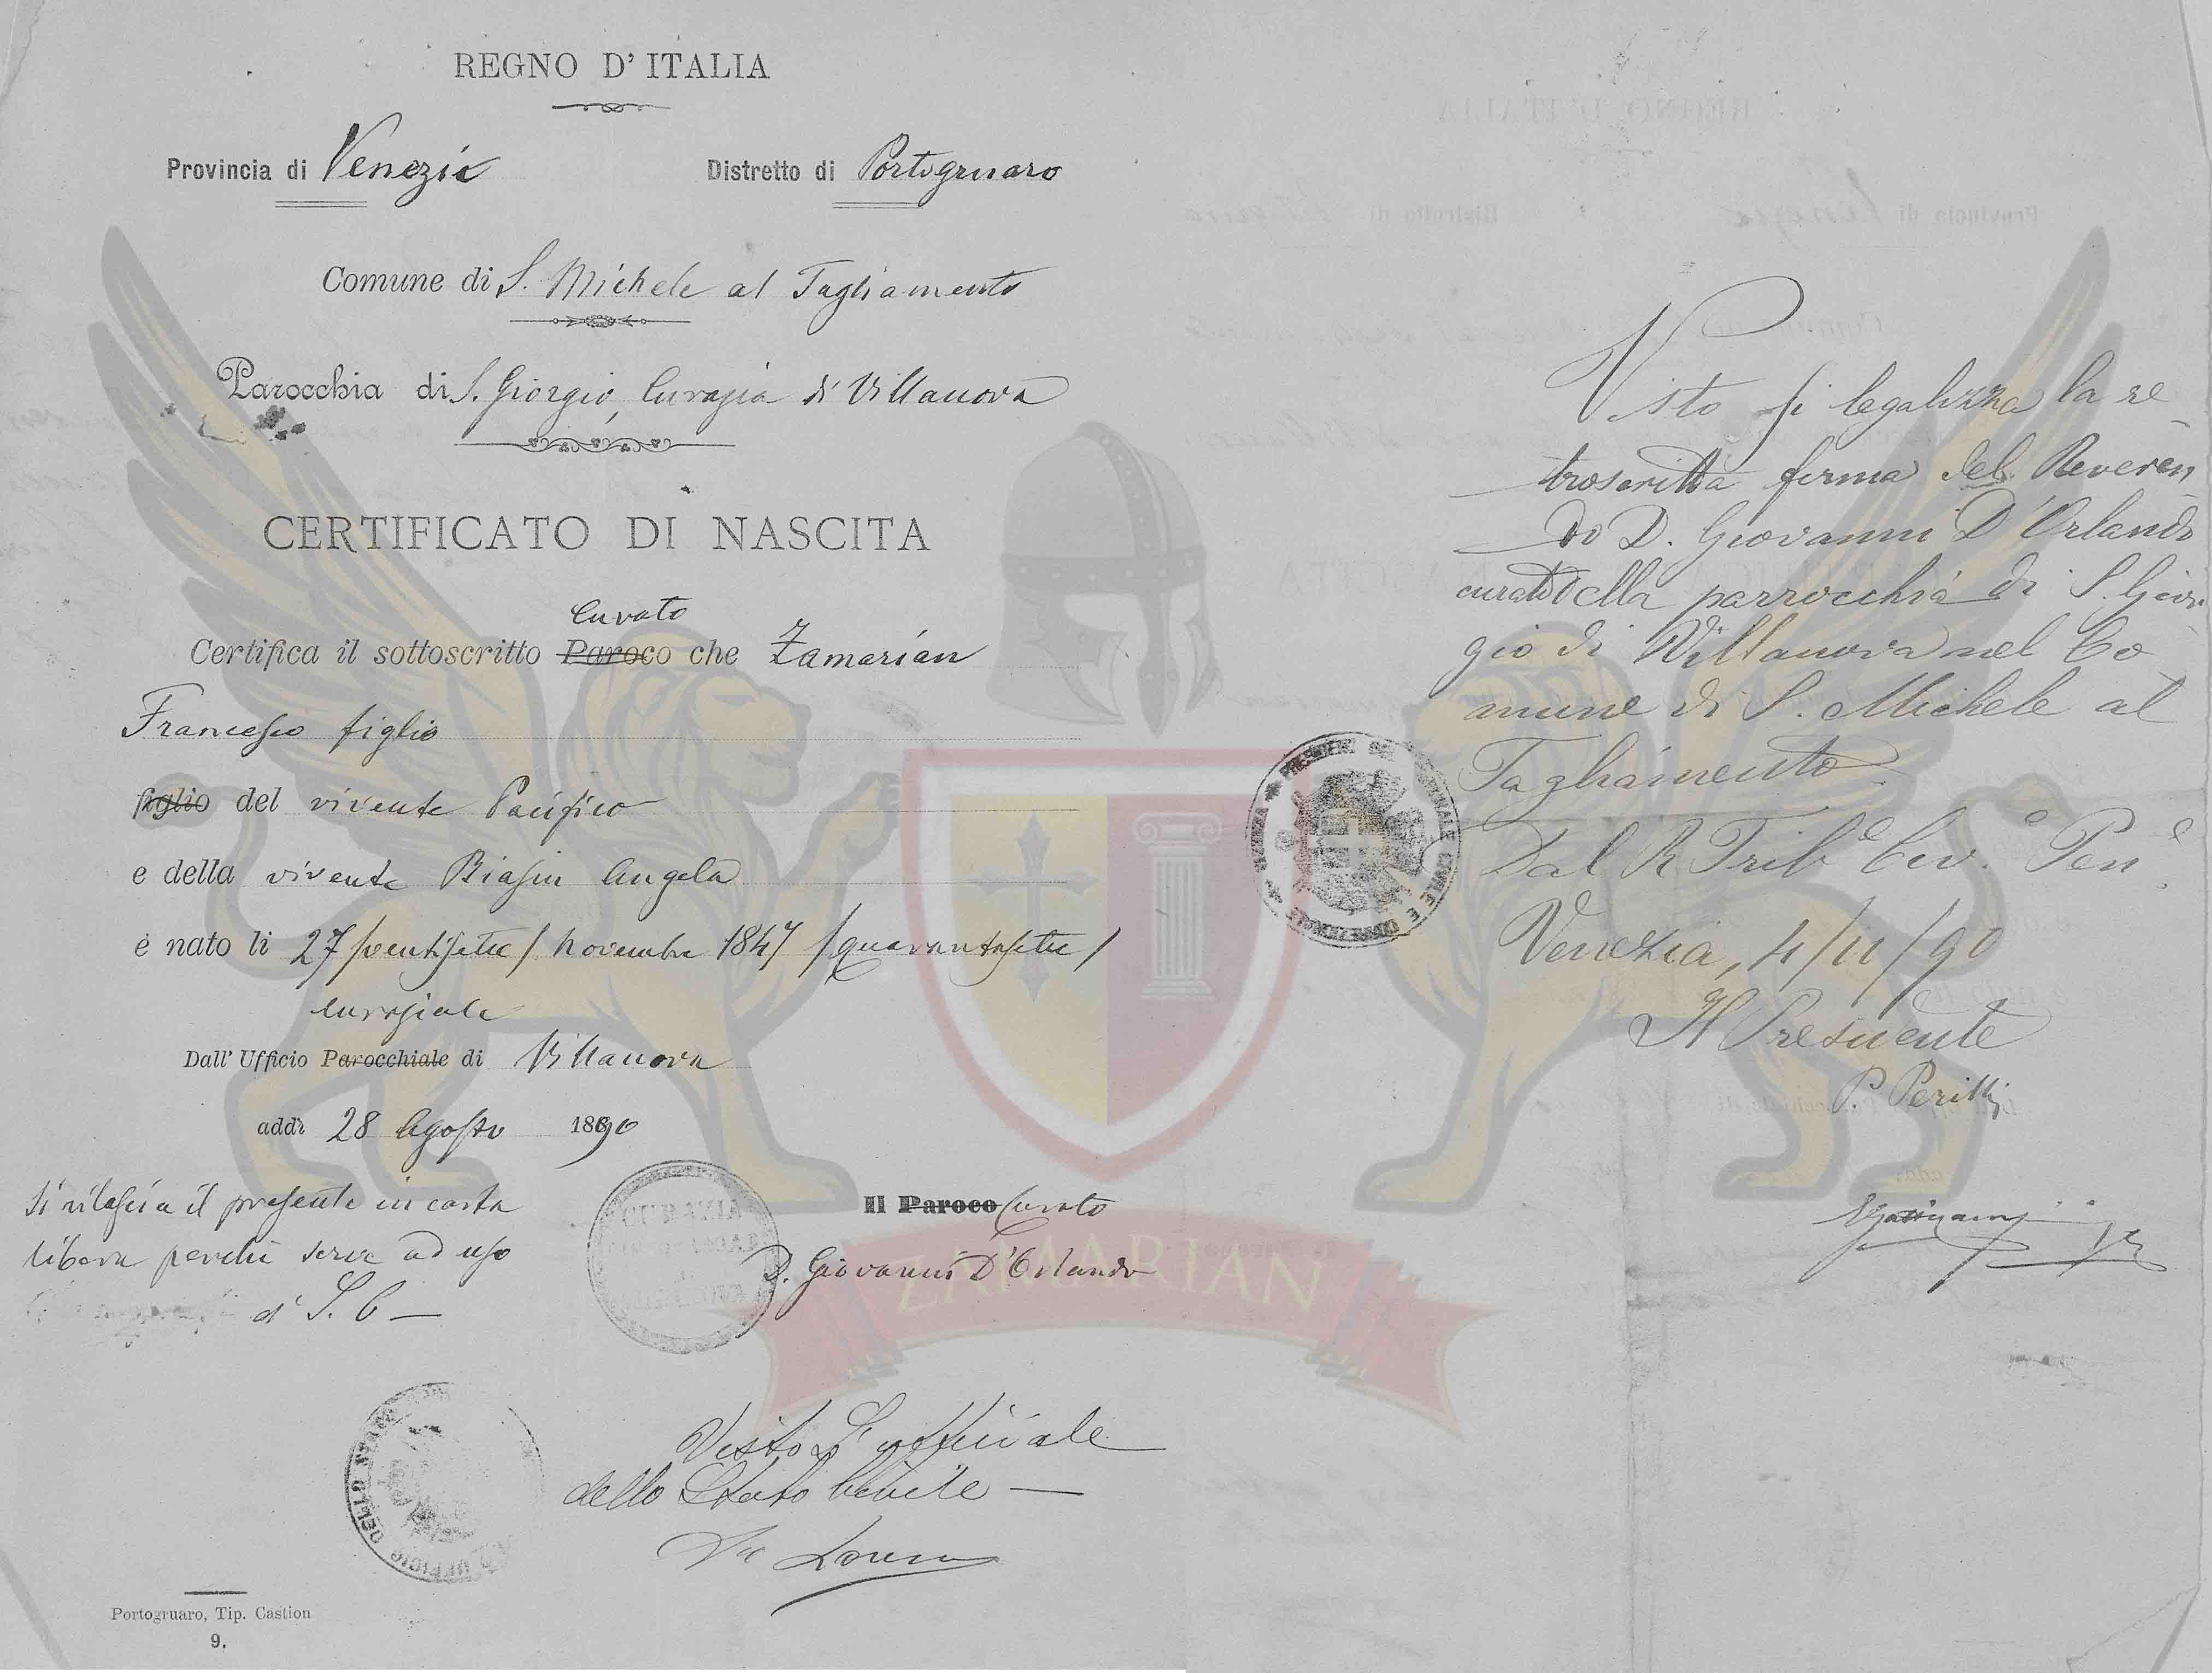 REGNO D'ITALIA
Provincia di Venezia
Distretto di Portogruaro
Comune di S. Michele al Tagliamento
Parocchia di S. Giorgio, Curazia di Villanova
CERTIFICATO DI NASCITA
Curato
Certifica il sottoscritto Paroco che Zamarian
Francesco figlio
figlio del vivente Pacifico
e della vivente Biasin Angela
è nato li 27 /ventisette/ Novembre 1847 /quarantasette/
Curaziale
Dall' Ufficio Parocchiale di Villanova
addì 28 Agosto 1890
Si rilascia il presente in carta
libera perchè serve ad uso
di S. C
CURAZIA
Il Paroco Curato
D. Giovanni D'Orlando
ZAMARIAN
Visto L'ufficiale
dello Stato Civile
UFFICIO DELLO
Portogruaro, Tip. Castion
9.
Visto si legalizza la re
troscritta firma del Reveren
do D. Giovanni D'Orlando
curato della parrocchia di S. Gior
gio di Villanova nel Co
mune di S. Michele al
Tagliamento
Dal R Trib.e Civ.e Pen.e
Venezia, 4/11/90
Il Presidente
P. Perilli